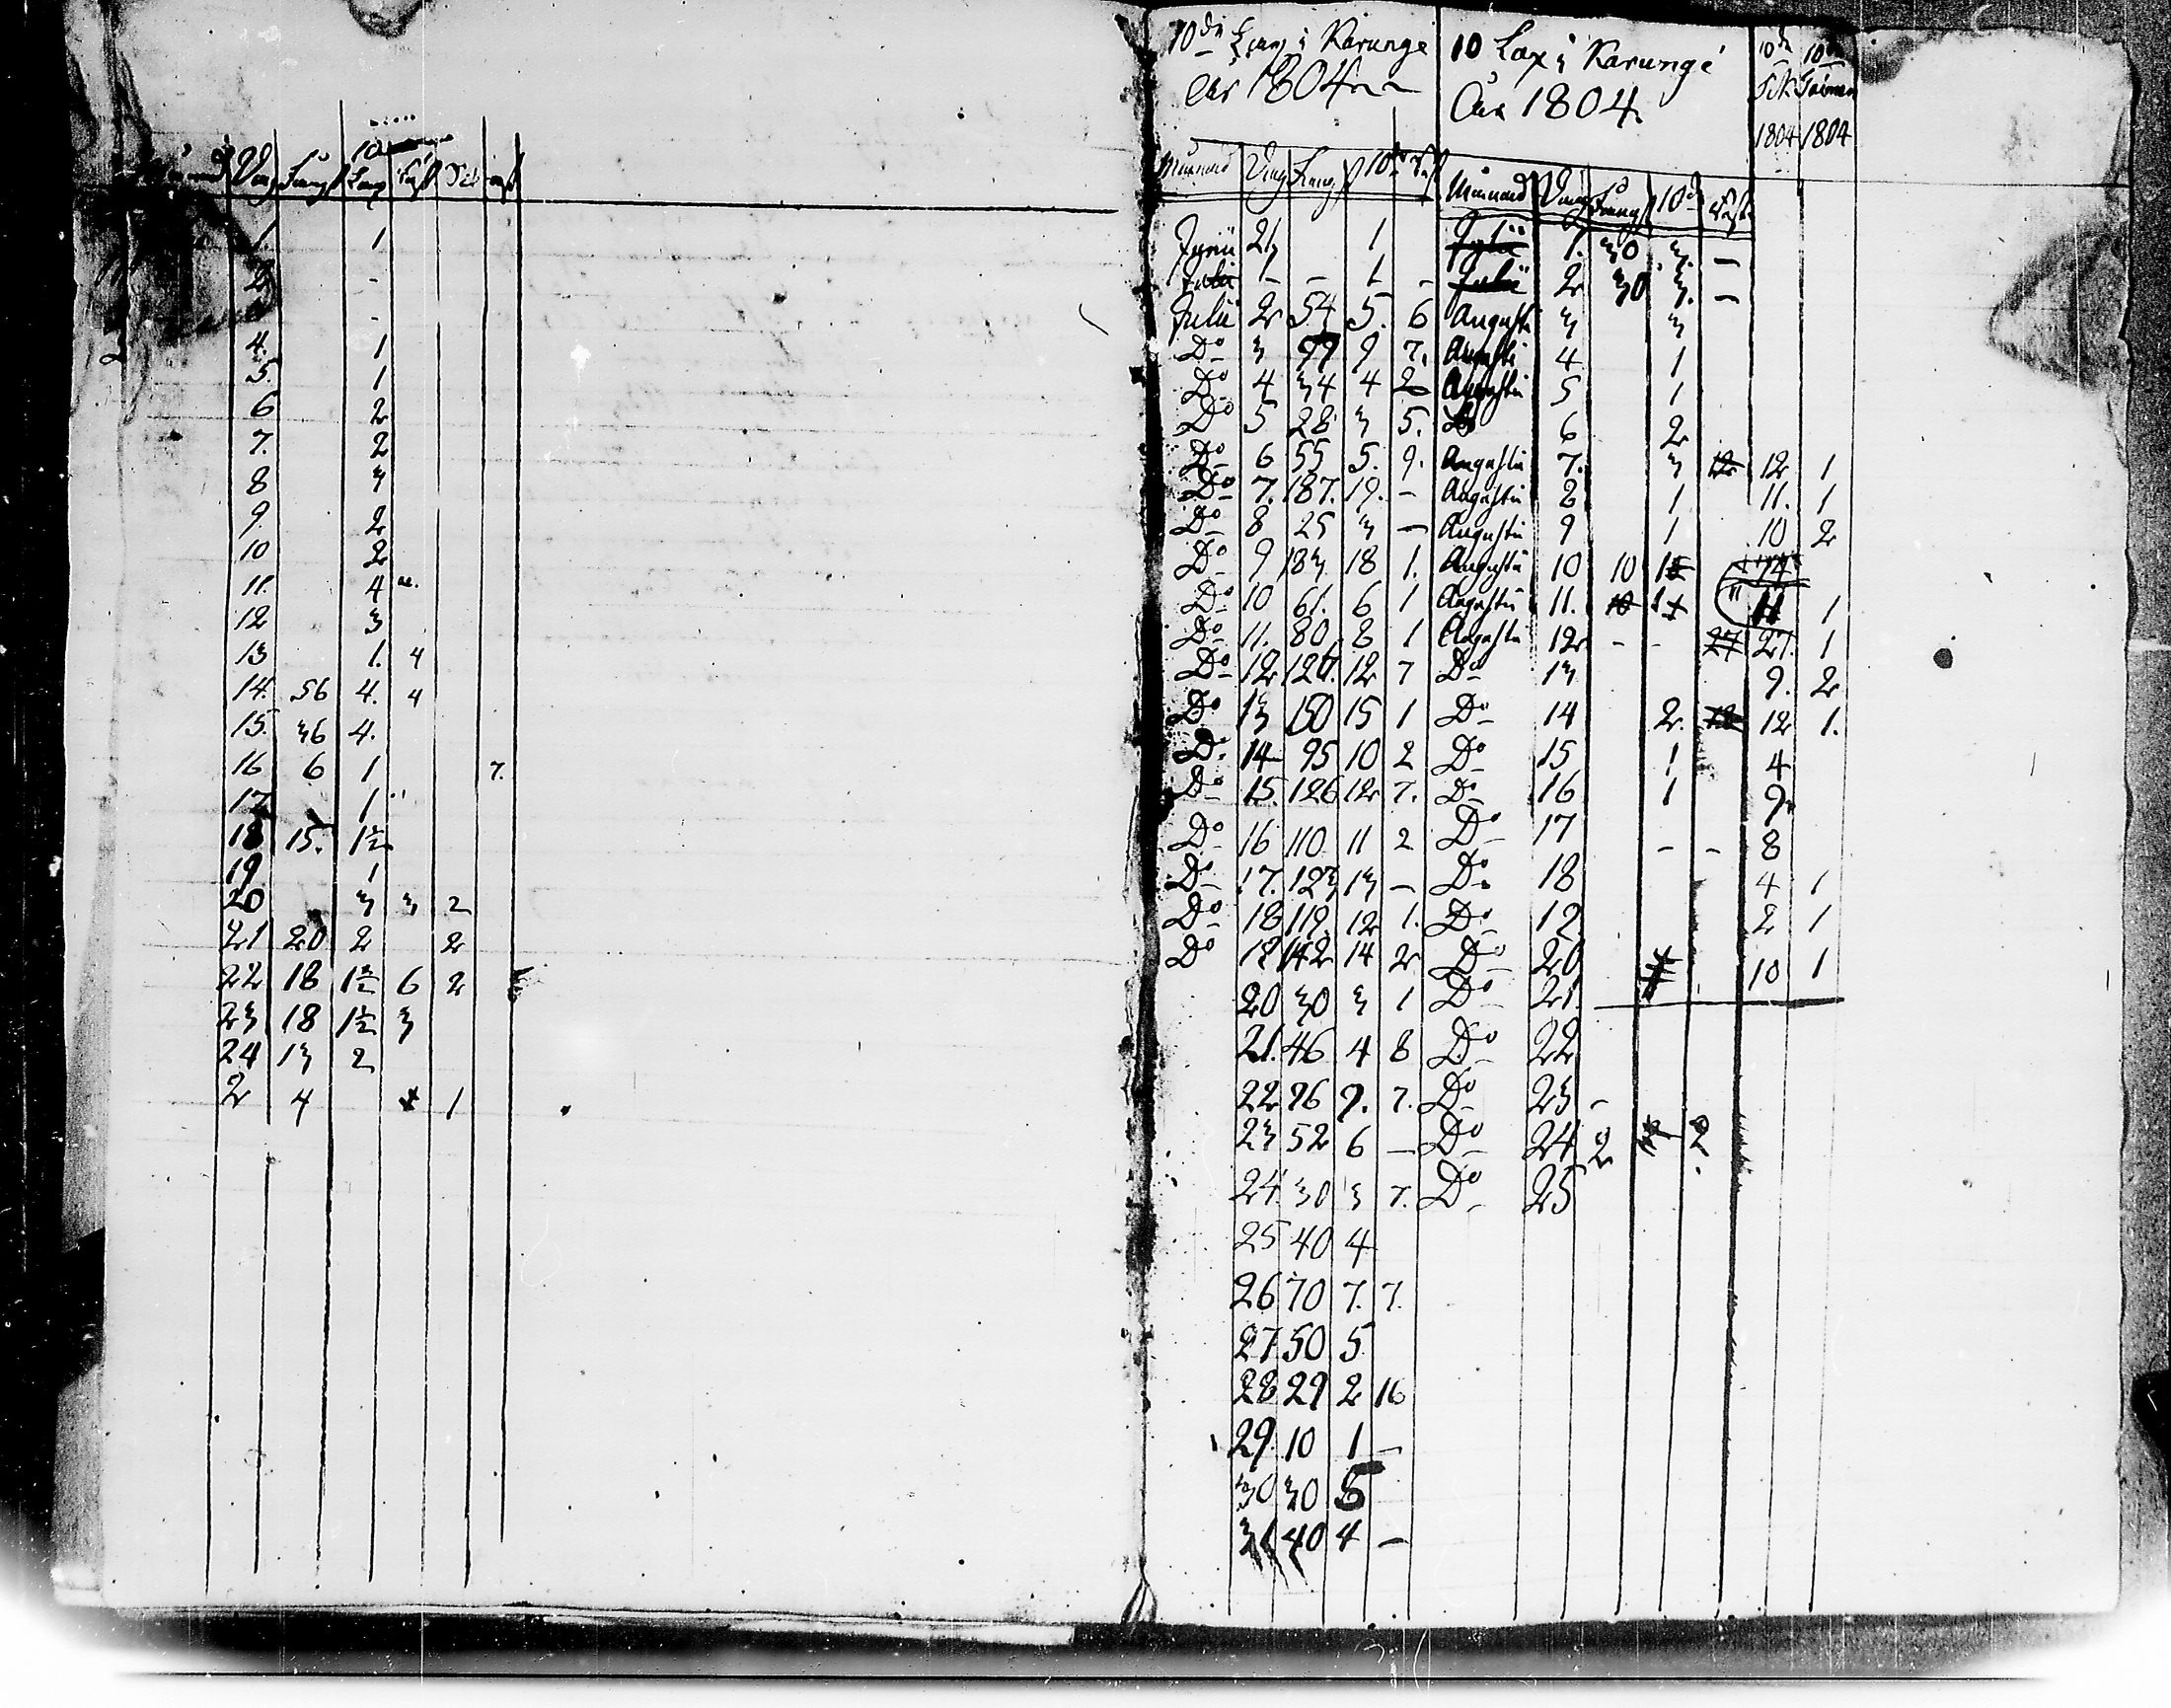 10
Månad Dag Fångst Lax
1. 1
2 -
-
4. 1
5. 1
6 2
7. 2
8 3
9. 2
10 2
11. 4
12 3
13 1. 4
14. 56 4. 4
15. 36 4.
16 6 1 7.
17 1
18 15. 1½
19 1
20 3 3 2
21 20 2 2
22 18 1½ 6 2
23 18 1½ 3
24 13 2
2 4 1
10de Lax i Karunge
År 1804
Månad Dag Fångst 10de
Junii 21 1
Julii 1 - 1 -
Julii 2 54 5. 6
Do 3 99 9 7.
Do 4 34 4 2
Do 5 28 3 5.
Do 6 55 5. 9.
Do 7. 187. 19. -
Do 8 25 3 -
Do 9 183 18 1.
Do 10 61. 6 1
Do 11. 80 8 1
Do 12 127. 12 7
Do 13 150 15 1
Do 14 95 10 2
Do 15. 126 12 7.
Do 16 110 11 2
Do 17. 123 13 -
Do 18 119. 12 1.
Do 19 142 14 2
20 30 3 1
21. 46 4 8
22 96 9. 7.
23 52 6 -
24 30 3 7.
25 40 4
26 70 7. 7.
27 50 5
28 29 2 16
29. 10 1 -
30 30 5
31 40 4 -
10 Lax i Karunge
År 1804.
10de 10de
Sik Taimen
1804 1804
Månad Dag Fångst 10de
Julii 1. 30 3. -
Julii 2 30 3. -
Augusti 3 3
Augusti 4 1
Augustii 5 1
6 2
Augustii 7. 3 12 12 1
Augustii 8 1 11. 1
Augustii 9 1 10 2
Augustii 10 10 1
Augustii 11. 10 1 11 1
Augustii 12 - - 27 27. 1
Do 13 9. 2
Do 14 2. 12 12 1.
Do 15 1 4
Do 16 1 9
Do 17 - - 8
Do 18 4 1
Do 19 2 1
Do 20 10 1
Do 21
Do 22
Do 23 -
Do 24 2 2
Do 25